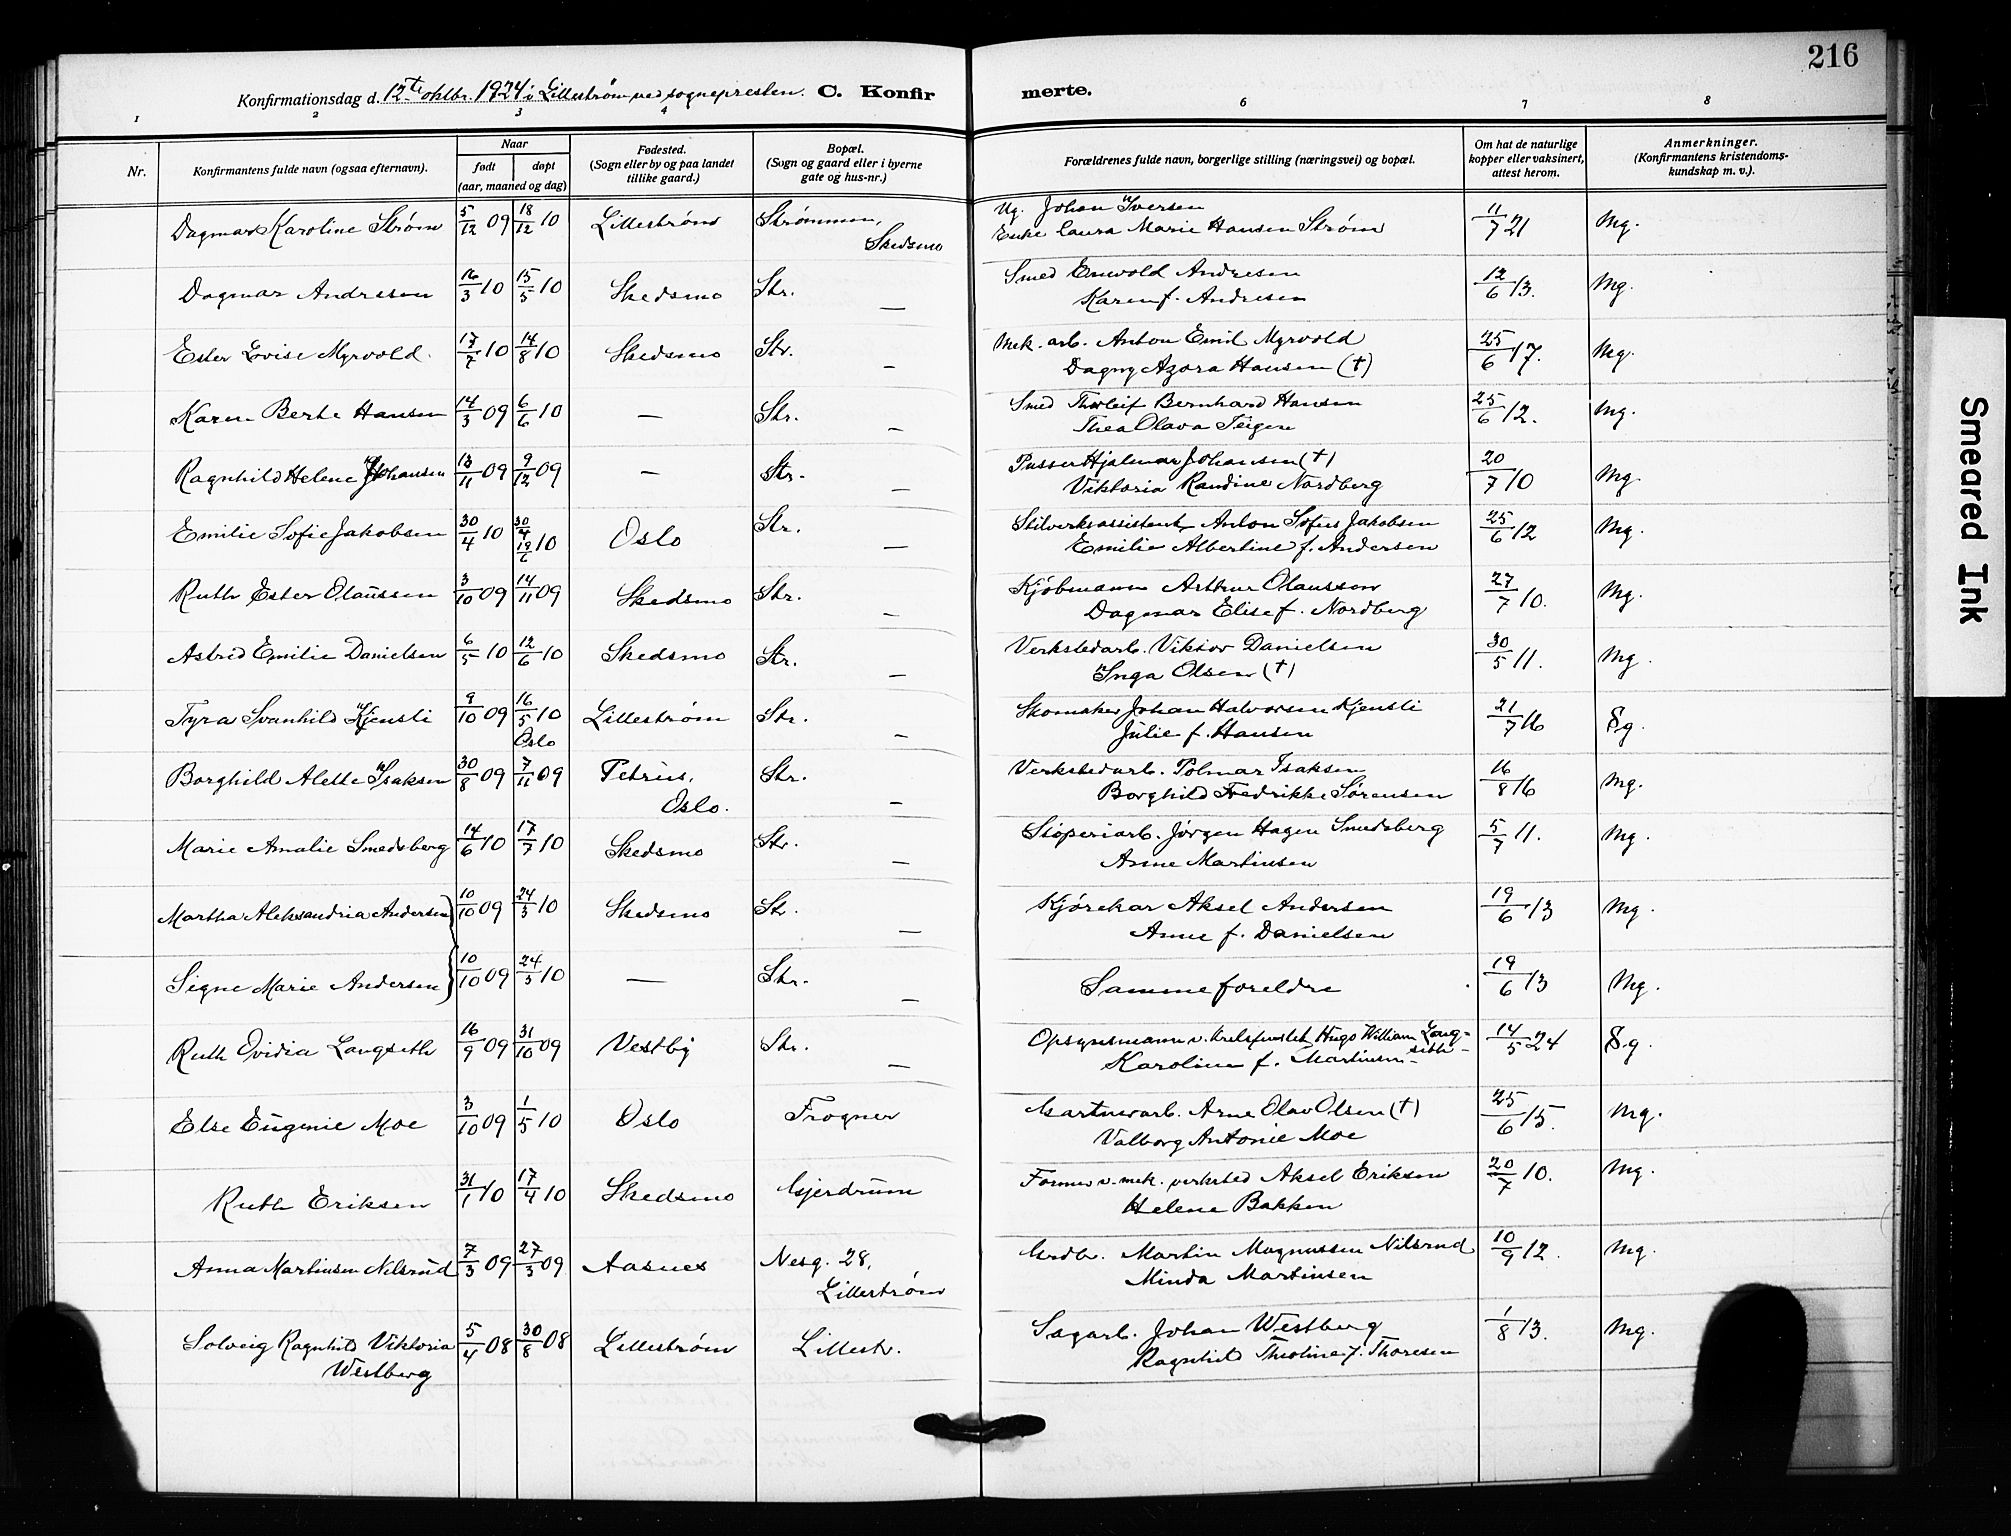 216
Konfirmationsdag d. 12te oktbr. 1924 i Lillestrøm ved sognepresten. C. Konfir merte.
1 2 3 4 6 7 8
Nr. Konfirmantens fulde navn (ogsaa efternavn). Naar født døpt (aar, maaned og dag) Fødested. (Sogn eller by og paa landet tillike gaard.) Bopæl. (Sogn og gaard eller i byerne gate og hus-nr.) Forældrenes fulde navn, borgerlige stilling (næringsvei) og bopæl. Om hat de naturlige kopper eller vaksinert, attest herom. Anmerkninger. (Konfirmantens kristendoms-kundskap m. v.).
Dagmar Karoline Strøm 5/12 09 18/12 10 Lillestrøm Strømmen, Ug. Johan Iversen 11/7 21 Mg.
Skedsmo Enke Laura Marie Hansen Strøm
Dagmar Andresen 16/3 10 15/5 10 Skedsmo Str. Smed Enwold Andresen 12/6 13. Mg.
— Karen f. Andresen
Ester Lovise Myrvold. 17/7 10 14/8 10 Skedsmo Str. Mek. arb. Anton Emil Myrvold 25/6 17. Mg.
— Dagny Azora Hansen (†)
Karen Berte Hansen 14/3 09 6/6 10 — Str. Smed Thorleif Bernhard Hansen 25/6 12. Mg.
— Thea Olava Teigen
Ragnhild Helene Johansen 13/11 09 9/12 09 — Str. Pusser Hjalmar Johansen (†) 20/7 10 Mg.
— Viktoria Randine Nordberg
Emilie Sofie Jakobsen 30/4 10 30/4 19/6 10 Oslo Str. Stilverksassistent Anton Sofus Jakobsen 25/6 12 Mg.
— Emilie Albertine f. Andersen
Ruth Ester Olaussen 3/10 09 14/11 09 Skedsmo Str. Kjøbmann Arthur Olaussen 27/7 10. Mg.
— Dagmar Elise f. Nordberg
Astrid Emilie Danielsen 6/5 10 12/6 10 Skedsmo Str. Verkstedarb. Viktor Danielsen 30/5 11. Mg.
— Inga Olsen (†)
Tyra Svanhild Kjensli 9/10 09 16/5 10 Oslo Lillestrøm Str. Skomaker Johan Halvorsen Kjensli 21/7 16 S.g.
— Julie f. Hansen
Borghild Alette Isaksen 30/8 09 7/11 09 Petrus, Str. Verkstedarb. Polmar Isaksen 16/8 16 Mg.
Oslo. — Borghild Fredrikke Sørensen
Marie Amalie Smedsberg 14/6 10 17/7 10 Skedsmo Str. Støperiarb. Jørgen Hagen Smedsberg 5/7 11. Mg.
— Anne Martinsen
Martha Aleksandria Andersen 10/10 09 24/3 10 Skedsmo Str. Kjørekar Aksel Andersen 19/6 13 Mg.
— Anne f. Danielsen
Signe Marie Andersen 10/10 09 24/3 10 — Str. — Samme foreldre 19/6 13 Mg.
Ruth Ovidia Langseth 16/9 09 31/10 09 Vestby Str. Opsynsmann v. Hugo William Lang- 14/5 24 S.g.
— Karoline f. Martinsen seth
Else Eugenie Moe 3/10 09 1/5 10 Oslo Frogner Gartnerarb. Arne Olav Olsen (†) 25/6 15. Mg.
Valborg Antonie Moe
Ruth Eriksen 31/1 10 17/4 10 Skedsmo Gjerdrum Former v. mek. verksted Aksel Eriksen 20/7 10. Mg.
Helene Bakken
Anna Martinsen Nilsrud 7/3 09 27/3 09 Aasnes Nesg. 28, Grdbr. Martin Magnussen Nilsrud 10/9 12. Mg.
Lillestrøm Minda Martinsen
Solveig Ragnhild Viktoria 5/4 08 30/8 08 Lillestrøm Lillestr. Sagarb. Johan Westberg 1/8 13. Mg.
Westberg Ragnhild Theoline f. Thoresen
Smeared Ink